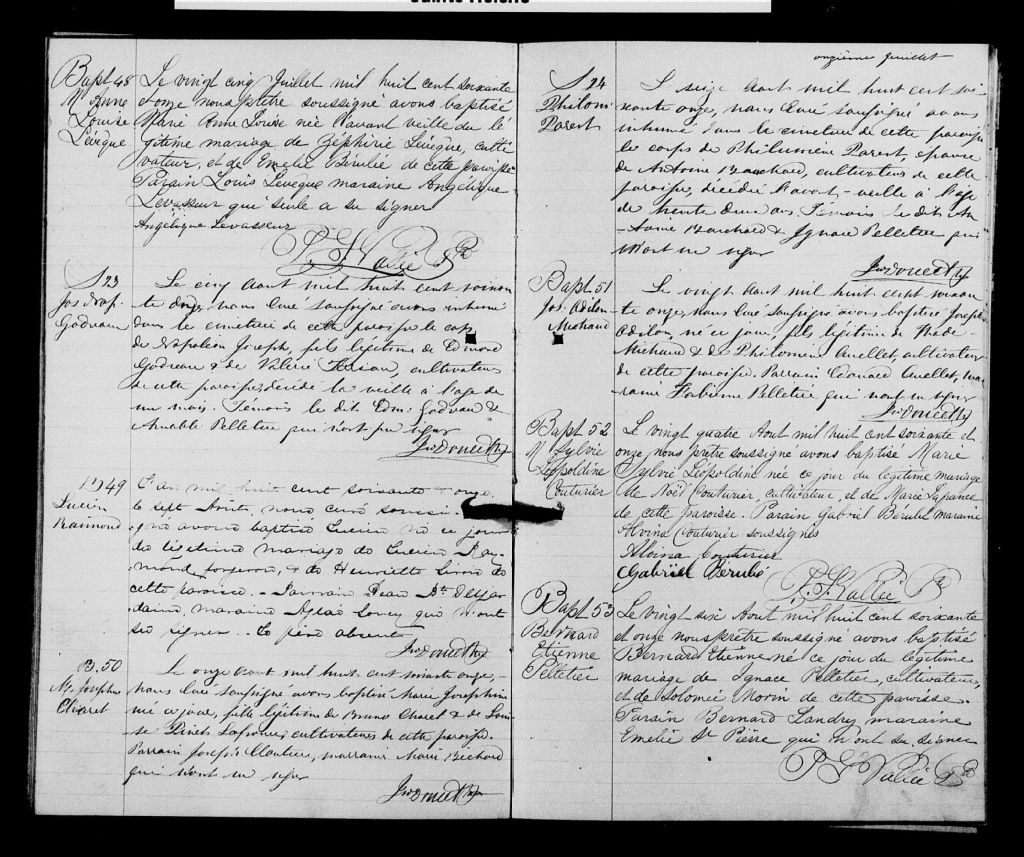 Sainte Hélène
Bapt 48
M. Anne
Louise
Lévêque
Le vingt cinq Juillet mil huit cent soixante
et onze nous prêtre soussigné avons baptisé
Marie Anne Louise née l'avant veille du lé
gitime mariage de Zéphirie Lévêque, culti
vateur, et de Emelie Bérubé de cette paroisse
Parain Louis Lévêque maraine Angélique
Levasseur qui seule a su signer
Angélique Levasseur
S 23
Jos Nap.
Godreau
Le cinq Aout mil huit cent soixan
te onze, nous Curé soussigné avons inhumé
dans le cimetière de cette paroisse le corps
de Napoléon Joseph, fils légitime de Edmond
Godreau & de Valérie, cultivateur
de cette paroisse, décédé la veille à l'age de
un mois. Témoins le dit Edm. Godreau &
Amable Pelletier qui n'ont pu signer
49
Lucien
Raimond
L'an mil huit cent soixante & onze
le sept Août, nous curé soussi
gné avons baptisé Lucien né ce jour
du légitime mariage de Lucien Ray
mond forgeron, & de Henriette
cette paroisse. Parrain Jean Bte Desjar
dains, maraine Aglaé qui n'ont
su signer. Le père absent
B. 50
M. Josephine
Charet
Le onze Aout mil huit cent soixante onze,
nous Curé soussigné avons baptisé Marie Josephine
née ce jour, fille légitime de Bruno Charet & de Loui
se cultivateur de cette paroisse.
Parrain Joseph Cloutier, marraine Marie Béchard
qui n'ont su signer
onzième feuillet
S 24
Philom
Parent
Le seize Aout mil huit cent soi
xante onze, nous Curé soussigné avons
inhumé dans le cimetière de cette paroisse
le corps de Philomène Parent, épouse
de Antoine Bouchard, cultivateur de cette
paroisse, décédée l'avant-veille à l'age
de trente deux ans. Témoins le dit An
toine Bouchard & Ignace Pelletier qui
n'ont su signer
Bapt 51
Jos. Odilon
Michaud
Le vingt Aout mil huit cent soixan
te onze, nous Curé soussigné avons baptisé Joseph
Odilon, né ce jour fils légitime de Thade
Michaud & de Philomène Ouellet, cultivateur
de cette paroisse. Parrain Edouard Ouellet, mar
raine Fabienne Pelletier qui n'ont su signer
Bapt 52
M. Sylvie
Léopoldine
Couturier
Le vingt quatre Aout mil huit cent soixante et
onze, nous prêtre soussigné avons baptisé Marie
Sylvie Léopoldine née ce jour du légitime mariage
de Noël Couturier, cultivateur, et de Marie Lafrance
de cette paroisse. Parain Gabriel Bérubé maraine
Alvina Couturier soussignés
Alvina Couturier
Gabriel Bérubé
P. S. Vallée Ptre
Bapt 53
Bernard
Etienne
Pelletier
Le vingt six Aout mil huit cent soixante
et onze nous prêtre soussigné avons baptisé
Bernard Etienne né ce jour du légitime
mariage de Ignace Pelletier, cultivateur,
et de Solomée Morin de cette paroisse.
Parain Bernard Landry maraine
Emelie St Pierre qui n'ont su signer